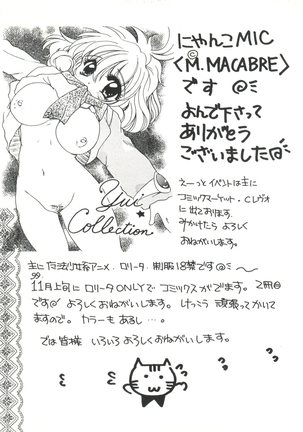 にゃんこMIC
©
〈M.MACABRE〉
です@ミ
よんで下さって
ありがとう
ございました@ミ
えーっと イベントは主に
コミックマーケット・Cレヴォ
に出ております。
みかけたら よろしく
おねがいします。
Yui
Collection
主に魔法少女系アニメ・ロリータ・制服18禁です@ミ〜
'99
11月上旬に ロリータONLYで コミックスがでます。2冊目
です@ よろしくおねがいします。けっこう 頑張ってかいて
ますので。カラーもあるし…。
では皆様 いろいろ よろしくおねがいします。